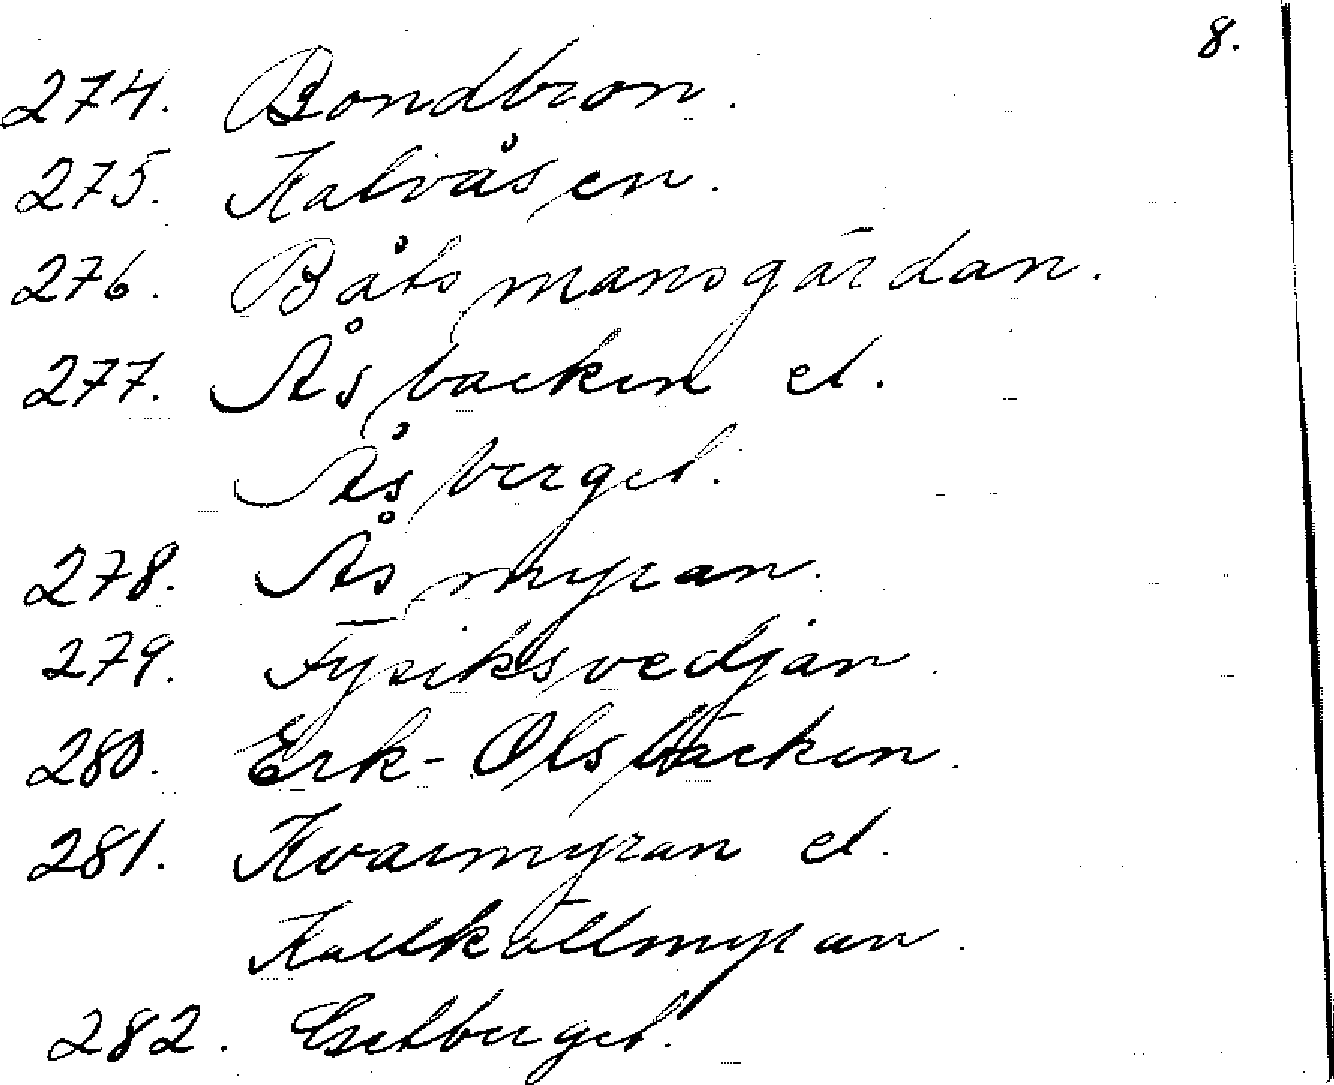 8.
274. Bondbron.
275. Kalvåsen.
276. Båtsmansgärdan.
277. Åsbacken el.
Åsberget.
278. Åsmyran.
279. Fysiksvedjan.
280. Erk-Olsbäcken.
281. Kvarmyran el.
Kallkällmyran.
282.